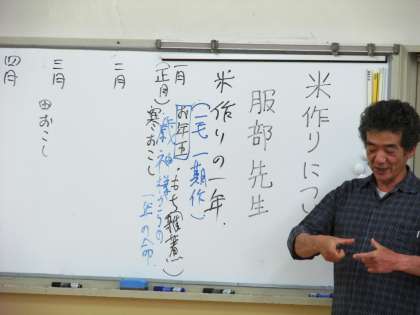 米作りにつ
服部先生
米作りの一年.
(一毛一期作)
一月
(正月)
お年玉・もち(雑煮)
寒おこし
歳神様からの
一年の命
二月
三月
田おこし
四月